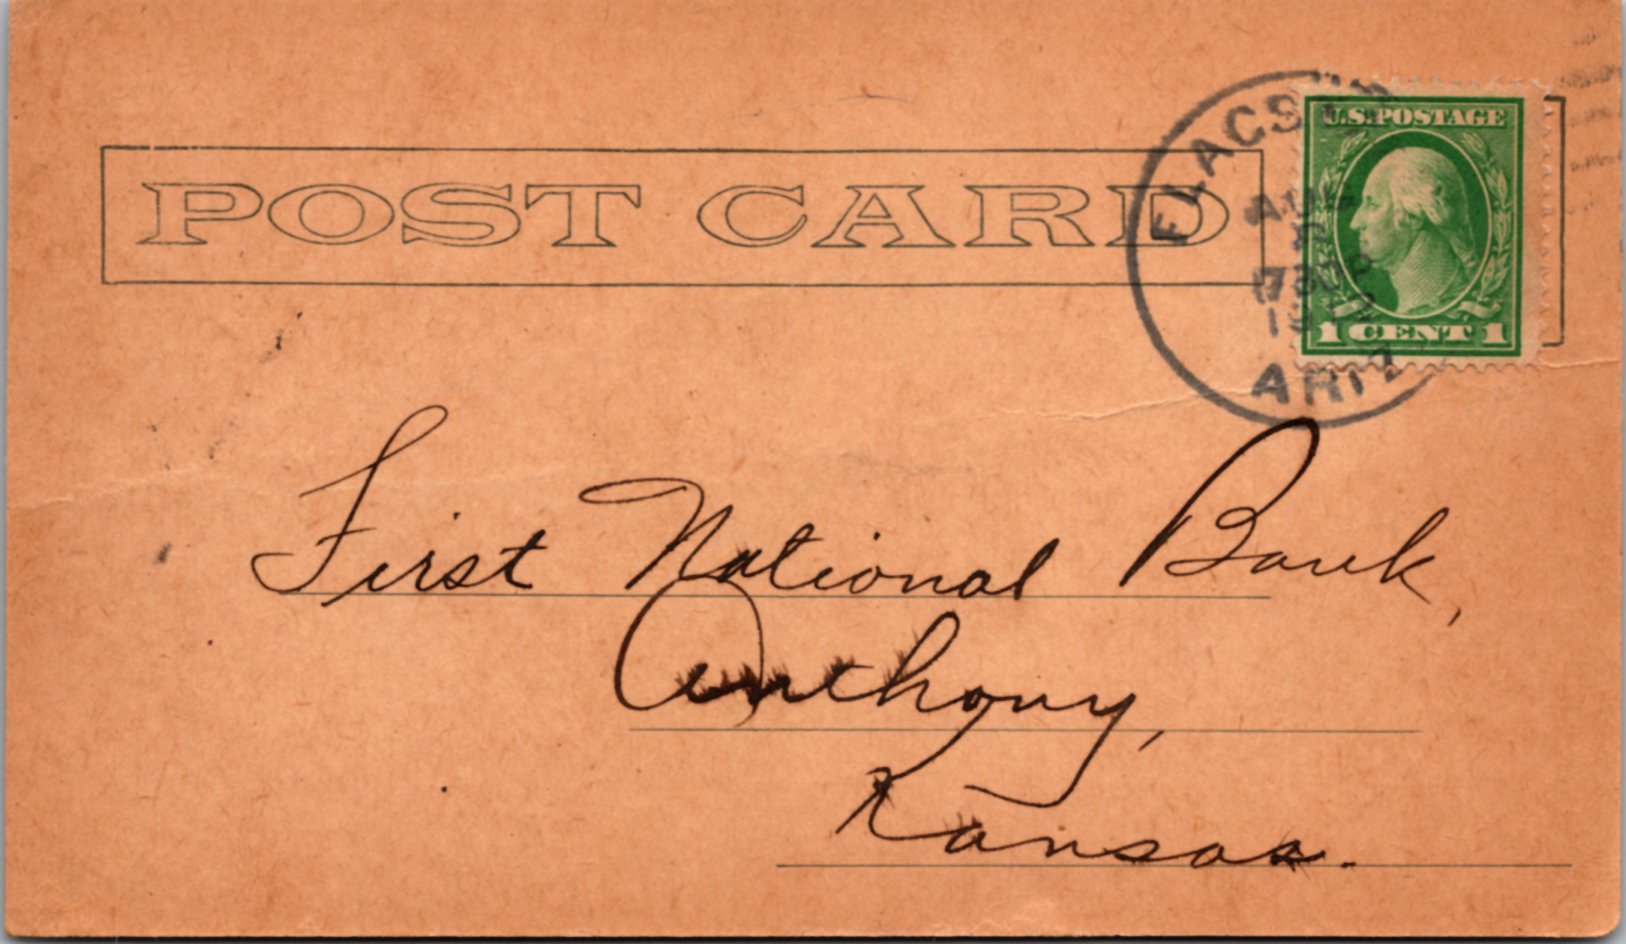 POST CARD
FLAGST
U.S. POSTAGE
1 CENT 1
ARIZ
First National Bank,
Anthony,
Kansas.